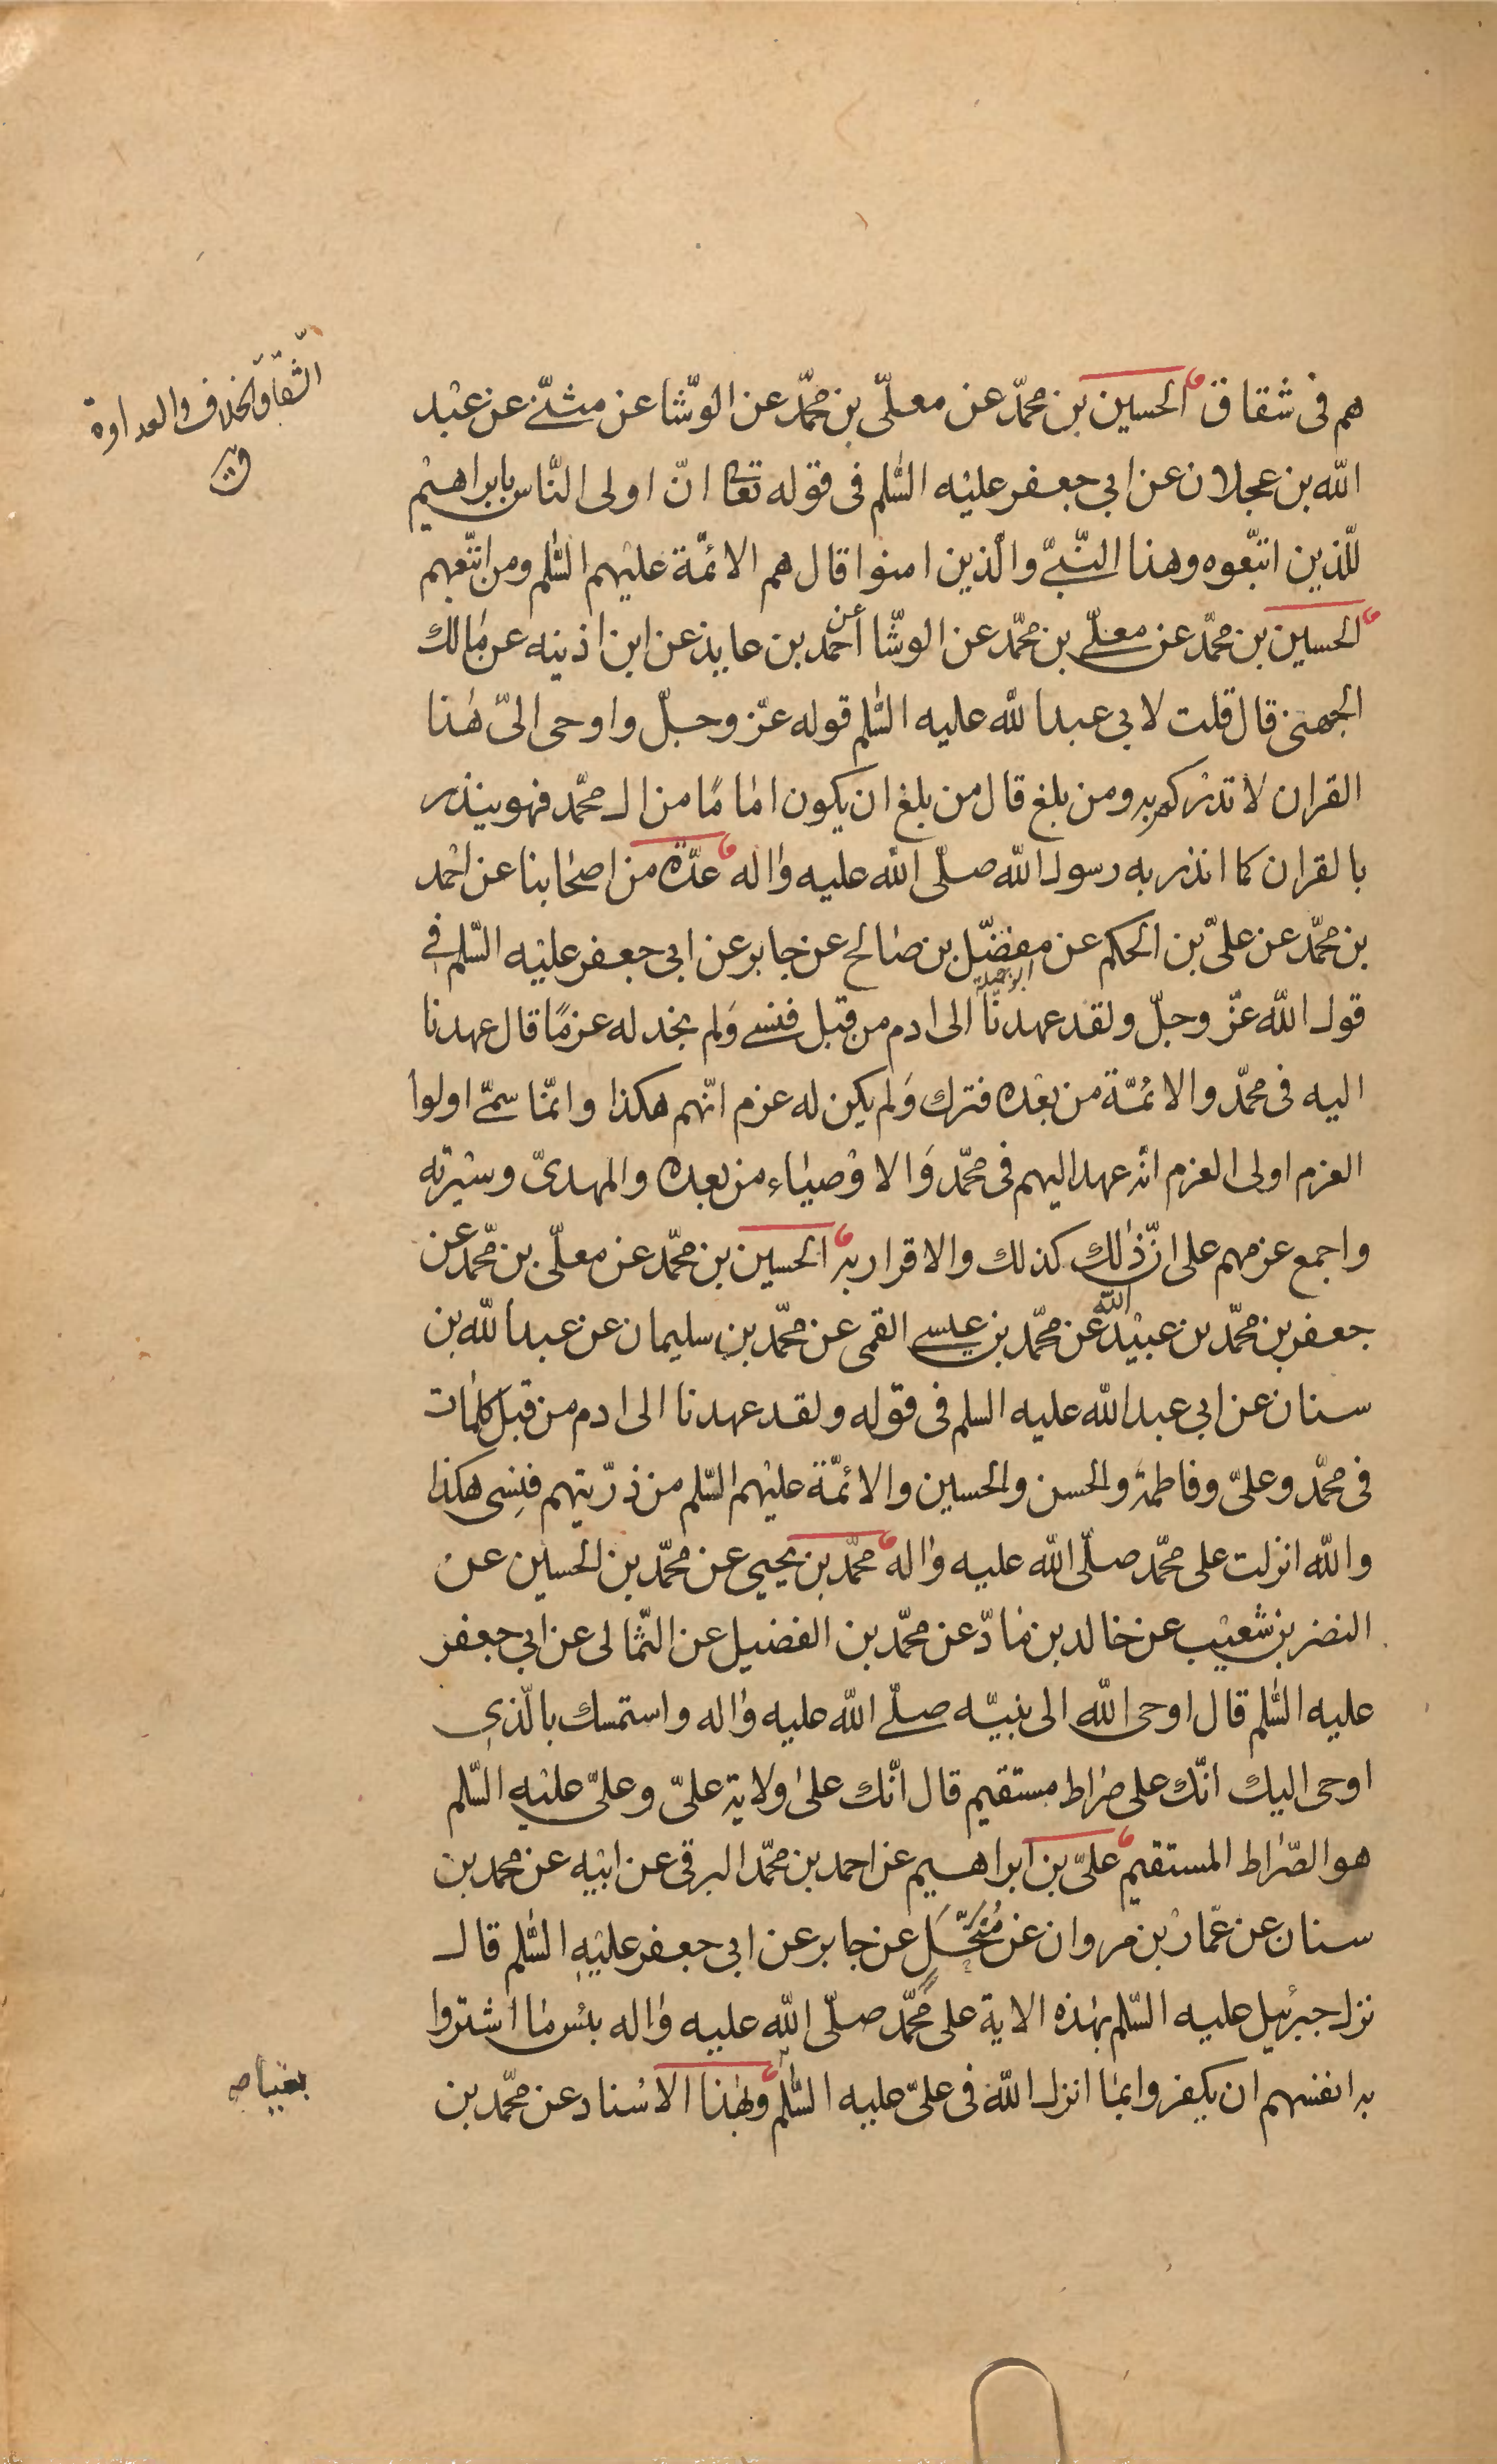 هم فى شقاق الحسين بن محمّد عن معلّى بن محمّد عن الوشّا عن مثنّى عن عبد
الله بن عجلان عن ابى جعفر عليه السّلم فى قوله تعا انّ اولى النّاس بابراهيم
للّذين اتبّعوه وهذا النّبىّ والّذين امنوا قال هم الائمّة عليهم السّلم ومن اتّبعهم
الحسين بن محمّد عن معلّى بن محمّد عن الوشّا عن احمد بن عايذ عن ابن اذينه عن مالك
الجهنى قال قلت لابى عبدالله عليه السّلم قوله عزّ وجلّ واوحى الىّ هذا
القران لانذركم به ومن بلغ قال من بلغ ان يكون امامًا من ال محمّد فهو ينذر
بالقران كما انذر به رسول الله صلّى الله عليه واله عدّة من اصحابنا عن احمد
بن محمّد عن علىّ بن الحكم عن مفضّل بن صالح عن جابر عن ابى جعفر عليه السّلم فى
ابو جميلة
قول الله عزّ وجلّ ولقد عهدنا الى ادم من قبل فنسى ولم نجد له عزمًا قال عهدنا
اليه فى محمّد والائمّة من بعده فترك ولم يكن له عزم انّهم هكذا وانمّا سمّى اولوا
العزم اولى العزم انّه عهد اليهم فى محمّد والاوصياء من بعده والمهدىّ وسيرته
واجمع عزمهم على انّ ذلك كذلك والاقرار به الحسين بن محمّد عن معلّى بن محمّد عن
جعفر بن محمّد بن عبيد الله عن محمّد بن عيسى القمى عن محمّد بن سليمان عن عبدالله بن
سنان عن ابى عبدالله عليه السلم فى قوله ولقد عهدنا الى ادم من قبل كلمات
فى محمّد وعلىّ وفاطمة والحسن والحسين والائمّة عليهم السّلم من ذرّيتهم فنسى هكذا
والله انزلت على محمّد صلّى الله عليه واله محمّد بن يحيى عن محمّد بن الحسين عن
النضر بن شعيب عن خالد بن مادّ عن محمّد بن الفضيل عن الثّمالى عن ابى جعفر
عليه السّلم قال اوحى الله الى نبيّه صلّى الله عليه واله واستمسك بالّذى
اوحى اليك انّك على صراط مستقيم قال انّك على ولاية علىّ وعلىّ عليه السّلم
هو الصّراط المستقيم علىّ بن ابراهيم عن احمد بن محمّد البرقى عن ابيه عن محمد بن
سنان عن عمّار بن مروان عن مُنَخَّلٍ عن جابر عن ابى جعفر عليه السّلم قال
نزل جبرئيل عليه السّلم بهذه الاية على محمّد صلّى الله عليه واله بئس ما اشتروا
به انفسهم ان يكفروا بما انزل الله فى علىّ عليه السّلم وبهذا الاسناد عن محمّد بن
الشّقاق الخلاف والعداوة
ق
بغيًا ص